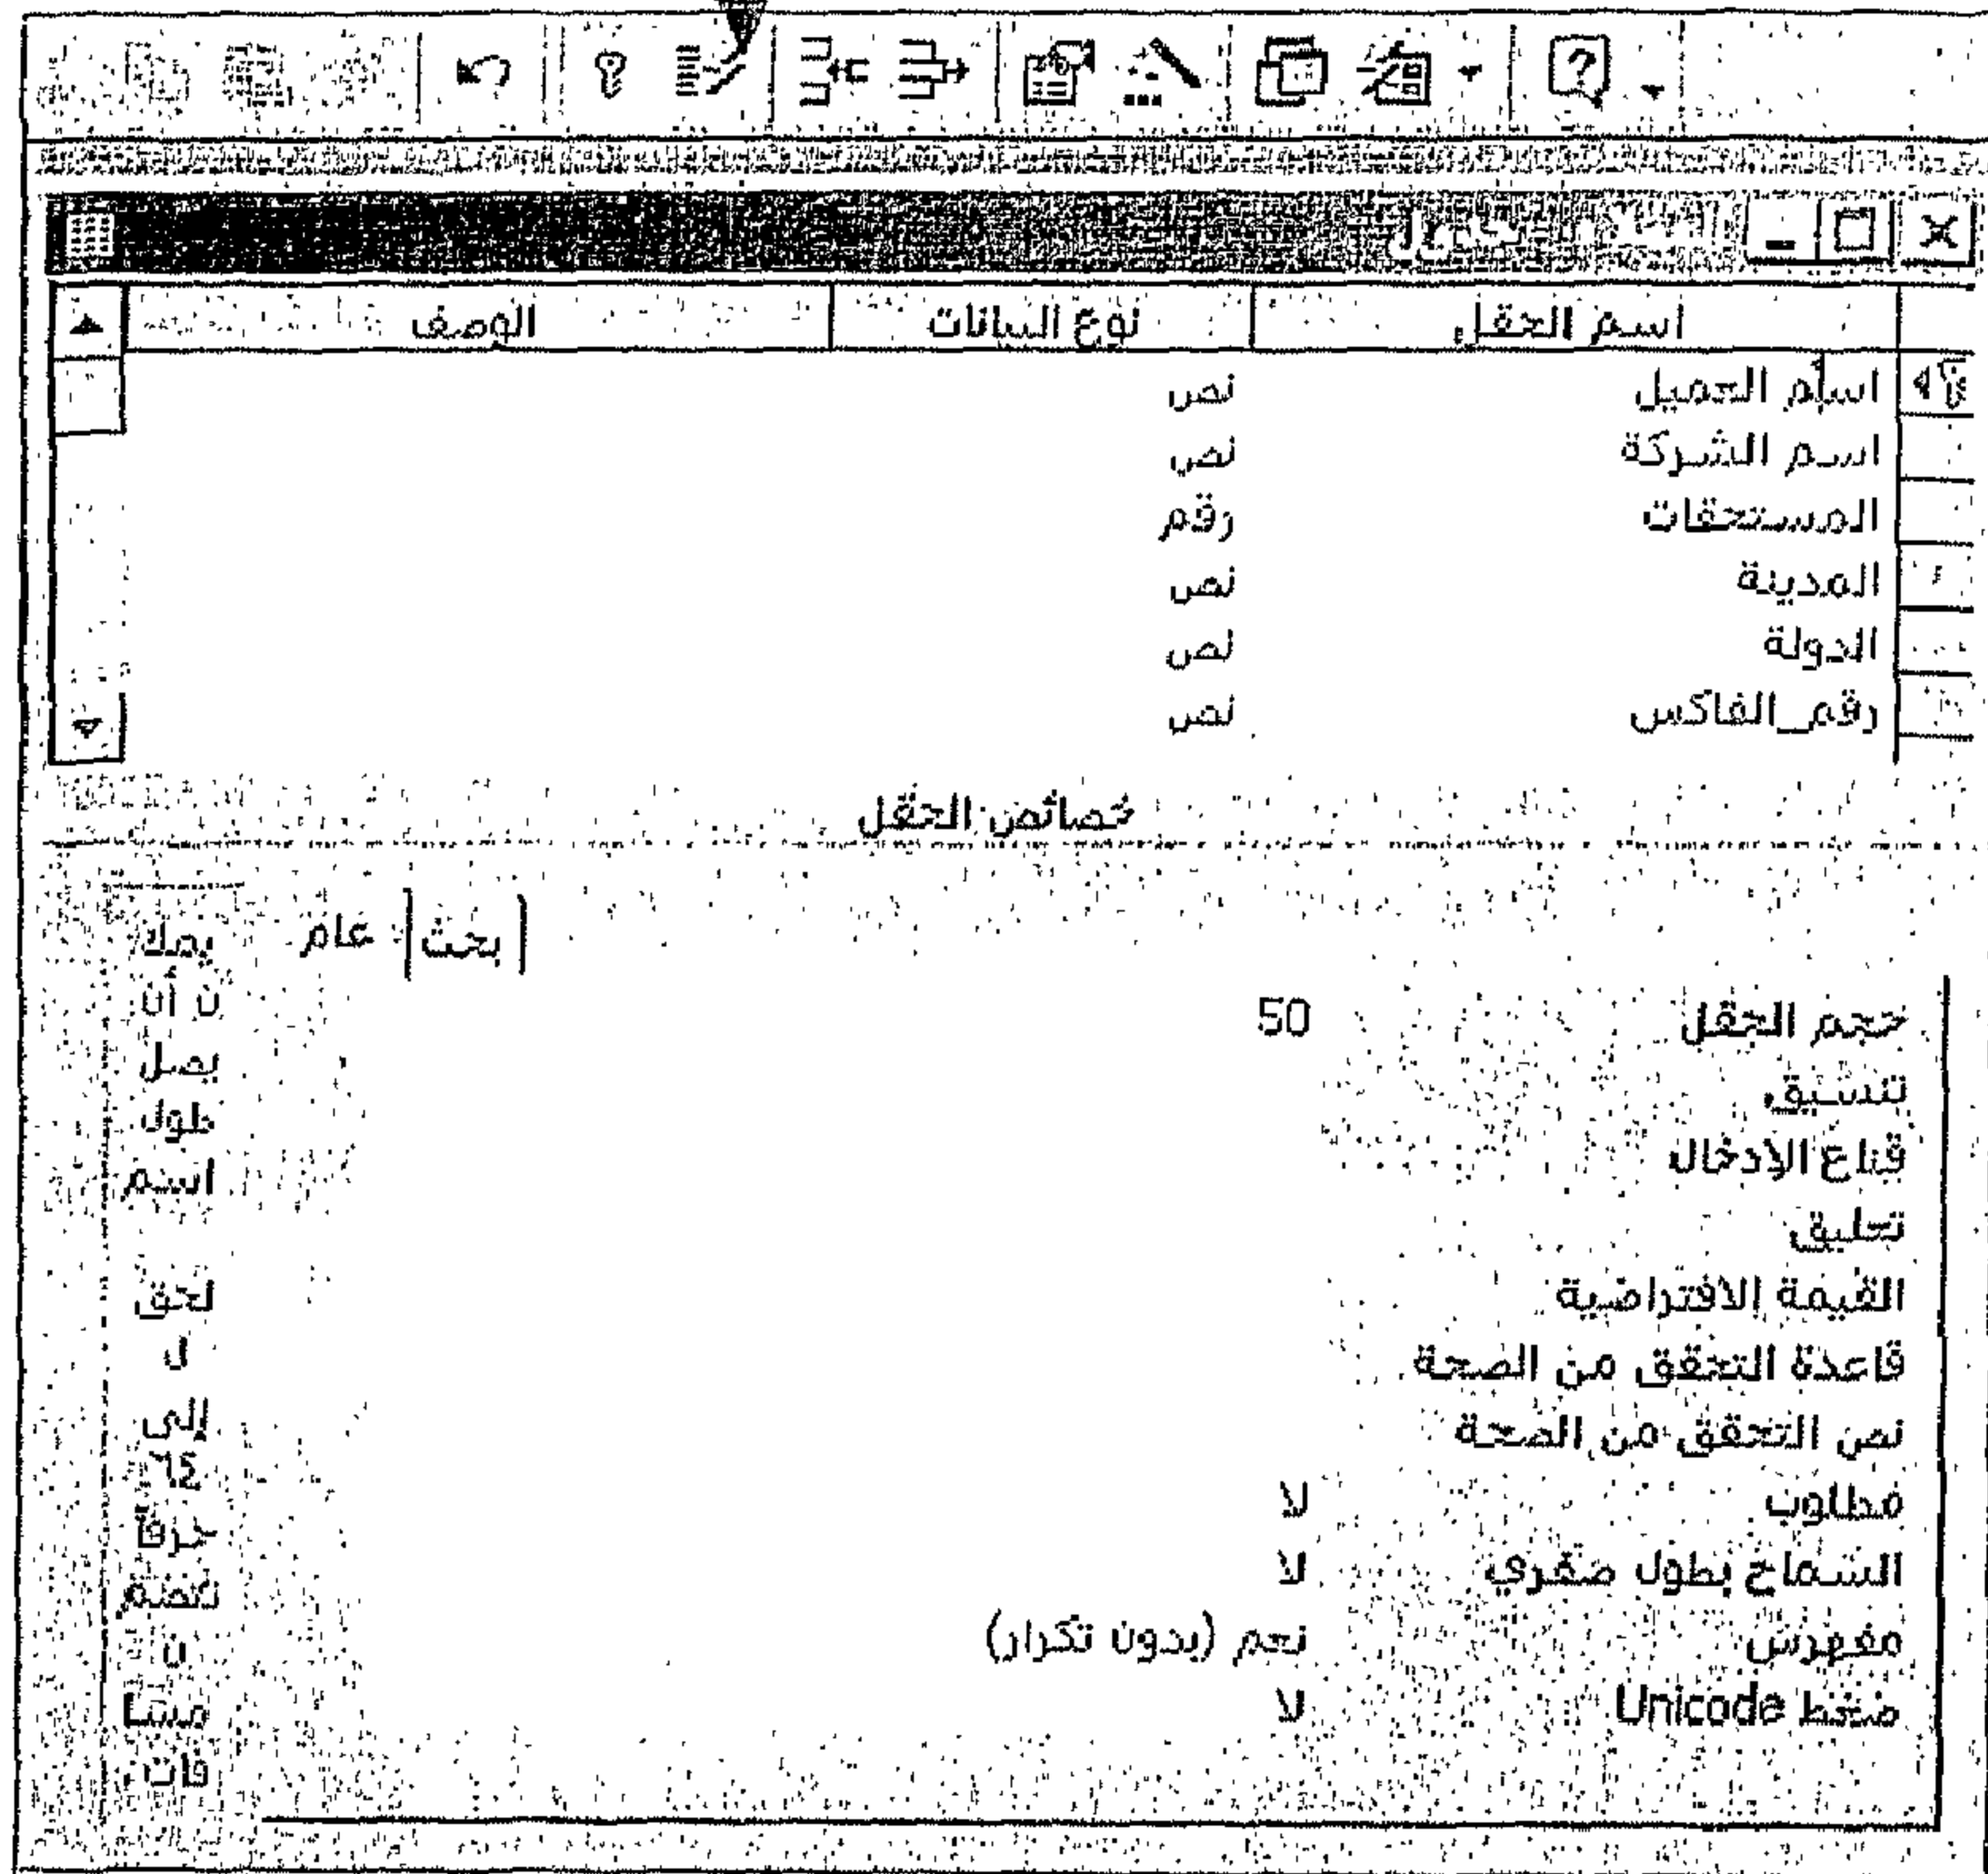 اسم الحقل نوع البيانات الوصف
اسم العميل نص
اسم الشركة نص
المستحقات رقم
المدينة نص
الدولة نص
رقم_الفاكس نص
خصائص الحقل
عام بحث
حجم الحقل 50
تنسيق
قناع الإدخال
تعليق
القيمة الافتراضية
قاعدة التحقق من الصحة
نص التحقق من الصحة
مطلوب لا
السماح بطول صفري لا
مفهرس نعم (بدون تكرار)
ضغط Unicode لا
يمك
ن أن
يصل
طول
اسم
لحق
ل
إلى
٦٤
حرفاً
تتضم
ن
مسا
فات